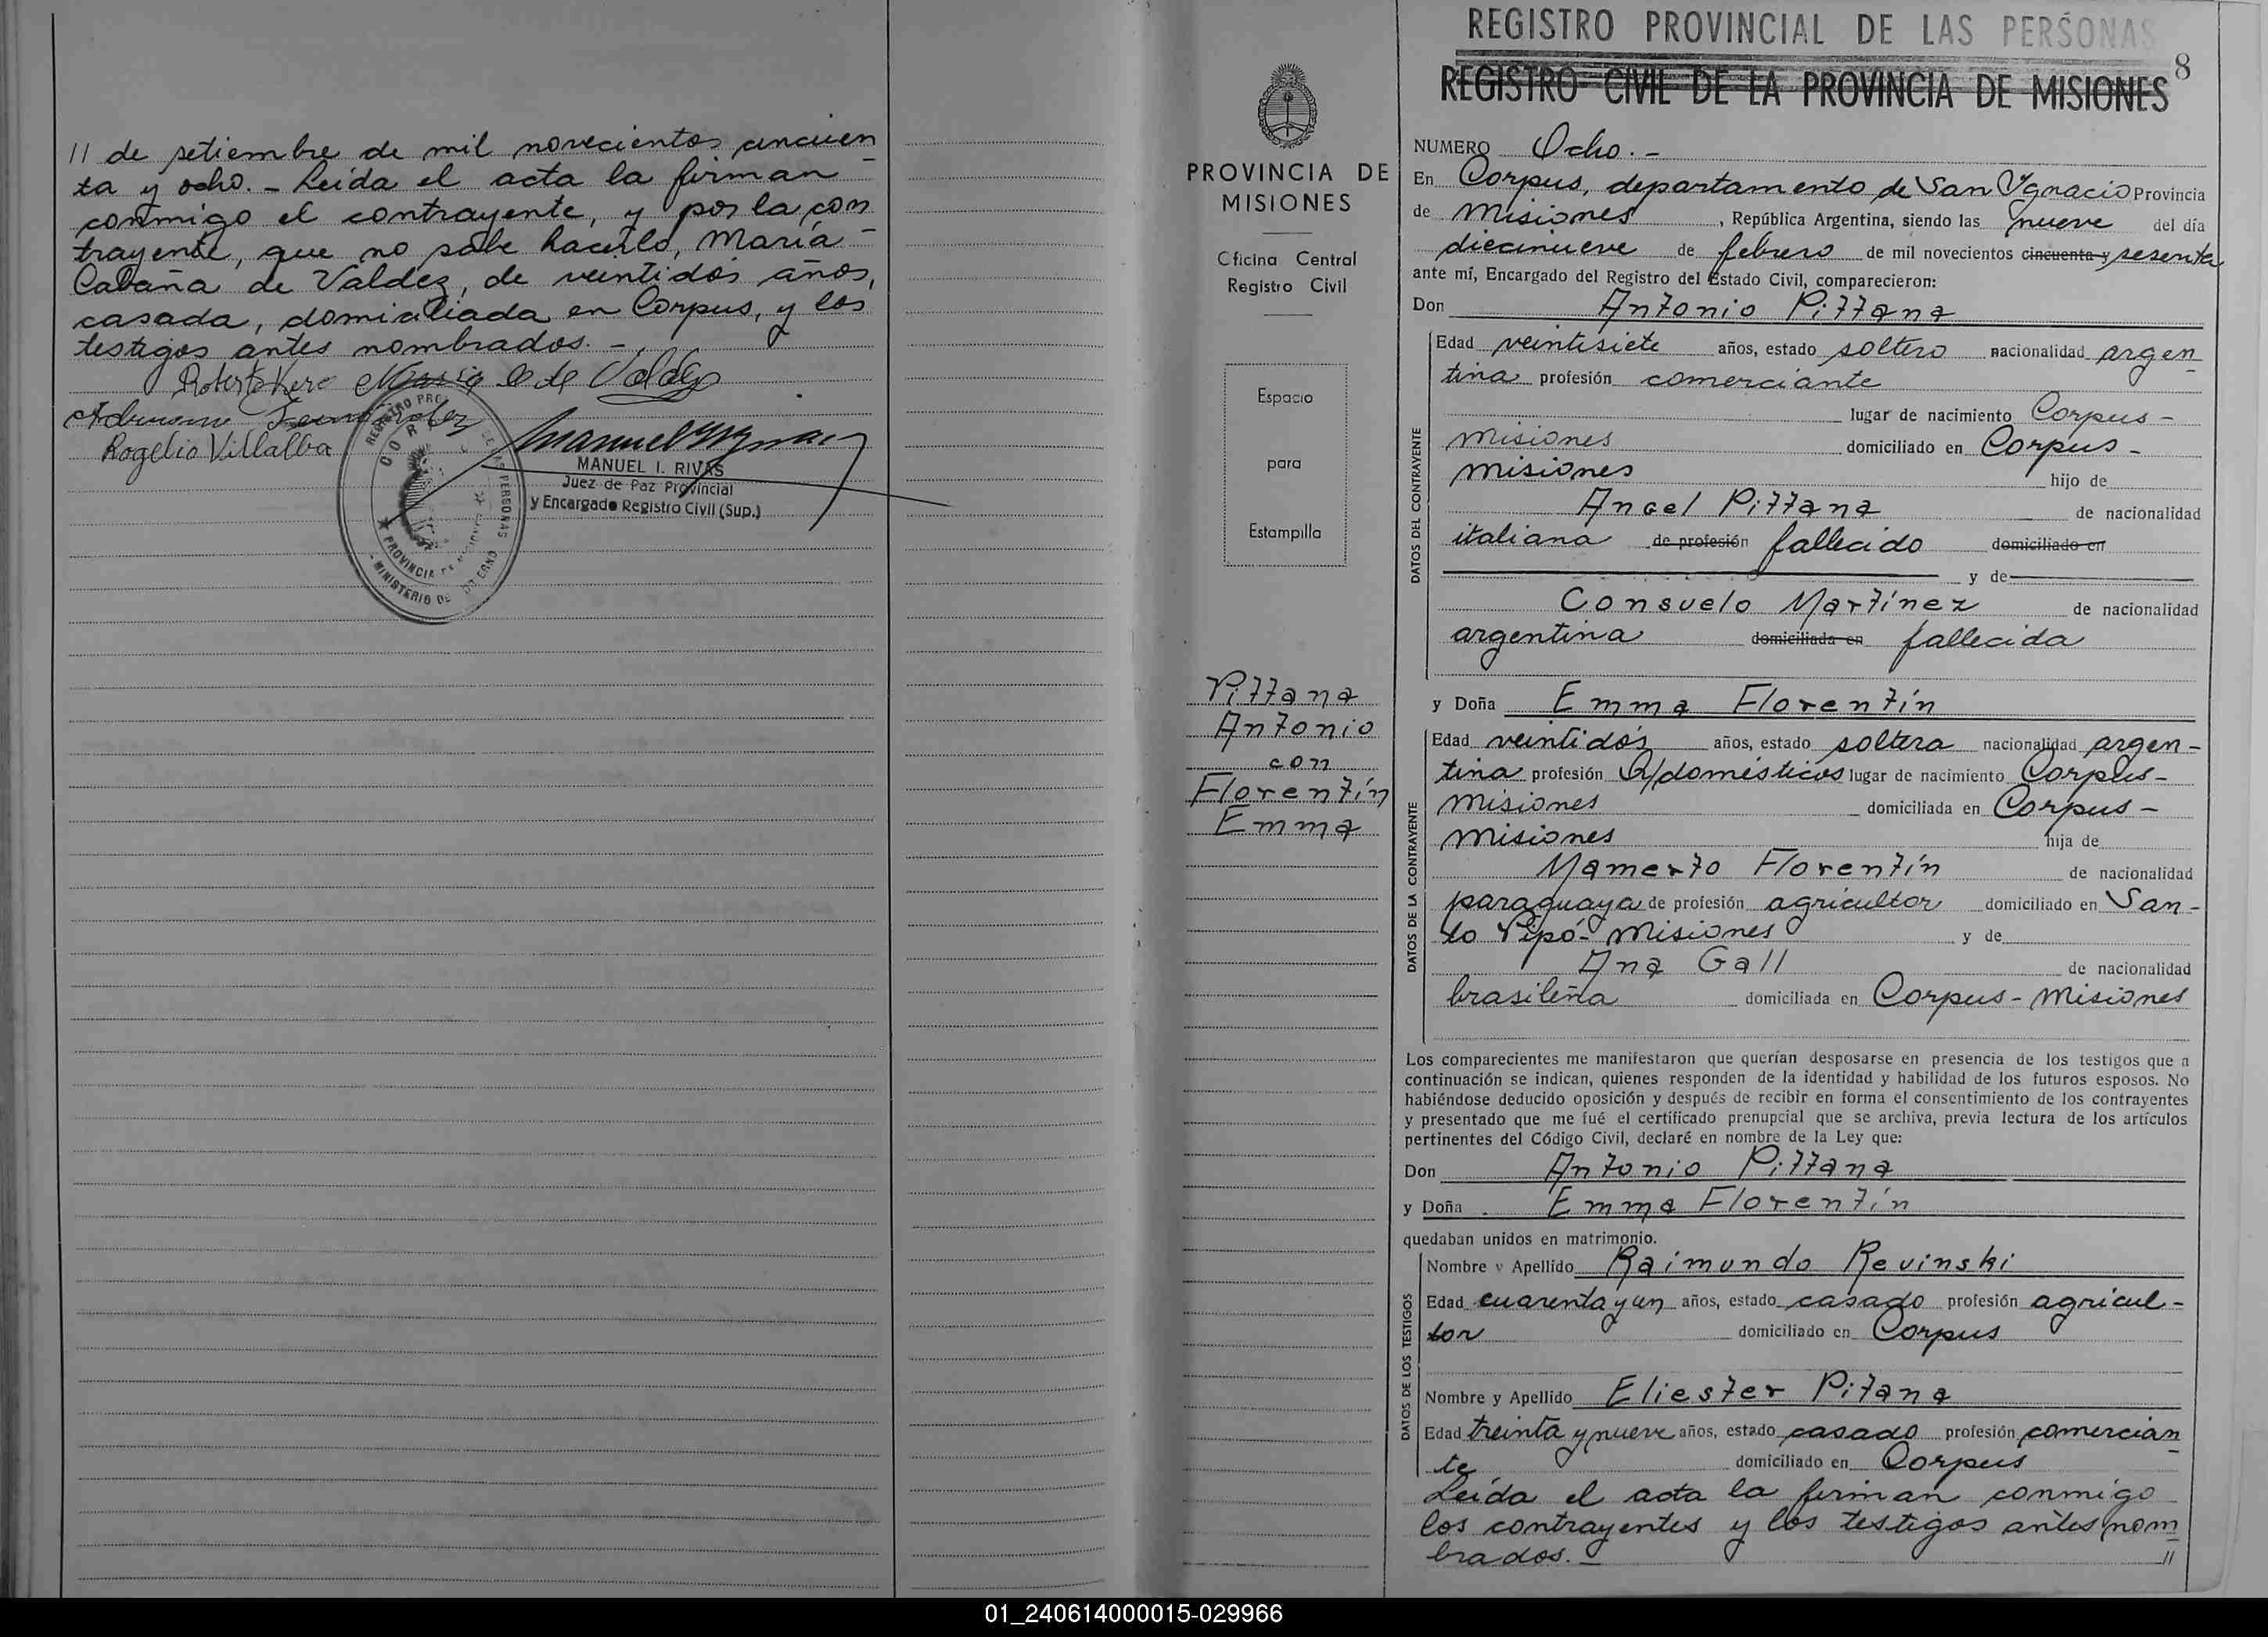 // de setiembre de mil novecientos cincuen
ta y ocho. - Leída el acta la firman
conmigo el contrayente, y por la con
trayente, que no sabe hacerlo, María
Cabaña de Valdez, de veintidós años,
casada, domiciliada en Corpus, y los
testigos antes nombrados. -
Maria C de Valdez
Rogelio Villalba
MANUEL I. RIVAS
Juez de Paz Provincial
y Encargado Registro Civil (Sup.)
PROVINCIA DE
MISIONES
Oficina Central
Registro Civil
Espacio
para
Estampilla
Pittana
Antonio
con
Florentín
Emma
REGISTRO PROVINCIAL DE LAS PERSONAS
REGISTRO CIVIL DE LA PROVINCIA DE MISIONES
8
NUMERO Ocho. -
En Corpus, departamento de San Ygnacio Provincia
de Misiones, República Argentina, siendo las nueve del día
diecinueve de febrero de mil novecientos cincuenta y sesenta
ante mí, Encargado del Registro del Estado Civil, comparecieron:
Don Antonio Pittana
DATOS DEL CONTRAYENTE
Edad veintisiete años, estado soltero nacionalidad argen
tina profesión comerciante
lugar de nacimiento Corpus -
Misiones domiciliado en Corpus -
Misiones hijo de
Angel Pittana de nacionalidad
italiana de profesión fallecido domiciliado en
y de
Consuelo Martínez de nacionalidad
argentina domiciliada en fallecida
y Doña Emma Florentín
DATOS DE LA CONTRAYENTE
Edad veintidós años, estado soltera nacionalidad argen-
tina profesión Q/domésticos lugar de nacimiento Corpus-
Misiones domiciliada en Corpus -
Misiones hija de
Mamerto Florentín de nacionalidad
paraguaya de profesión agricultor domiciliado en San-
to Pipó - Misiones y de
Ana Gall de nacionalidad
brasileña domiciliada en Corpus - Misiones
Los comparecientes me manifestaron que querían desposarse en presencia de los testigos que a
continuación se indican, quienes responden de la identidad y habilidad de los futuros esposos. No
habiéndose deducido oposición y después de recibir en forma el consentimiento de los contrayentes
y presentado que me fué el certificado prenupcial que se archiva, previa lectura de los artículos
pertinentes del Código Civil, declaré en nombre de la Ley que:
Don Antonio Pittana
y Doña Emma Florentín
quedaban unidos en matrimonio.
DATOS DE LOS TESTIGOS
Nombre y Apellido Raimundo Revinski
Edad cuarenta y un años, estado casado profesión agricul-
tor domiciliado en Corpus
Nombre y Apellido Eliester Pitana
Edad treinta y nueve años, estado casado profesión comercian
te domiciliado en Corpus
Leída el acta la firman conmigo
los contrayentes y los testigos antes nom
brados. - //
01_240614000015-029966